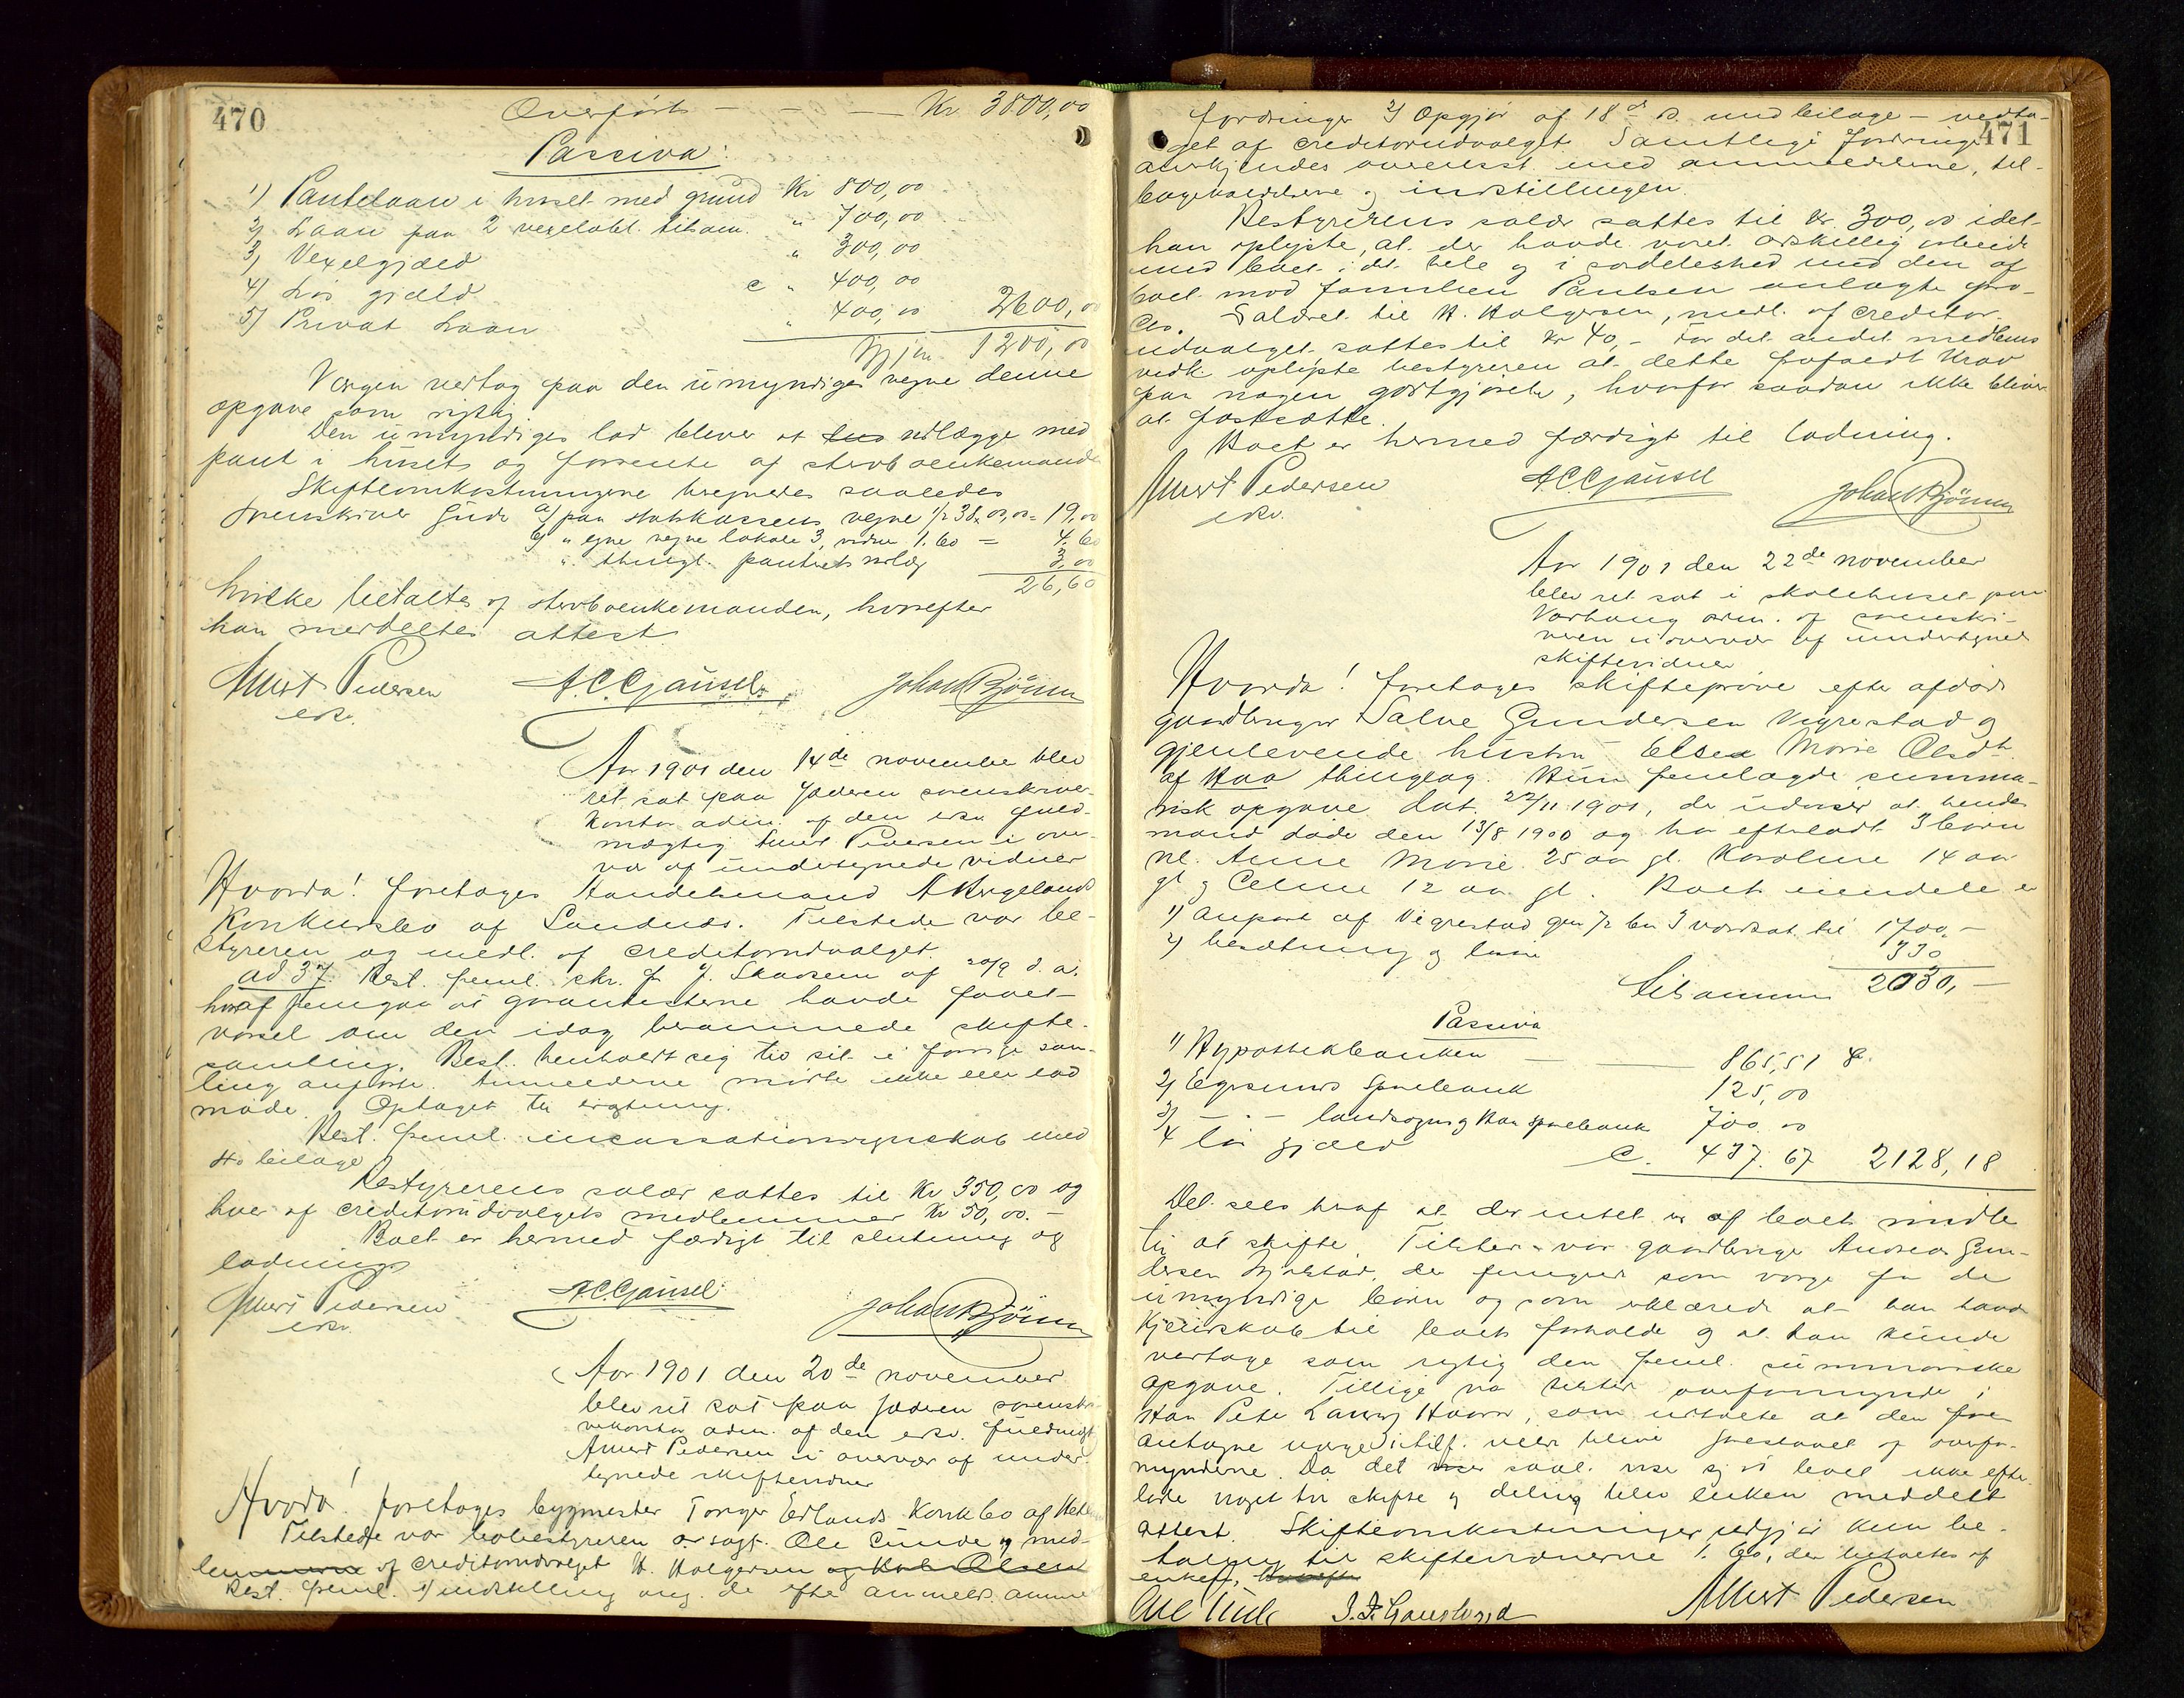 470
Overført - - - Kr 3800,00
Passiva:
1) Pantelaan i huset med grund Kr 800,00
2) Laan paa 2 vexelobl. tilsam. " 700,00
3) Vexelgjæld " 300,00
4) Løs gjæld c " 400,00
5) Privat Laan " 400,00 2600,00
Igjen 1200,00
Værgen vedtog paa den umyndiges vegne denne
opgave som rigtig.
Den umyndiges lod blever at udlægge med
pant i husets og forrente af sterboenkemanden
Skifteomkostningerne beregnedes saaledes
Sorenskriver Gude a) paa statskassens vegne 1/2 38,00 = 19,00
b) " egne vegne lokale 3, vidne 1.60 = 4.60
" thingl. pantets udlæg 3,00
26,60
hvilke betaltes af sterboenkemanden, hvorefter
han meddeltes attest
Amert Pedersen A.C. Gausel Johan Bjönn
esv.
Aar 1901 den 14de november blev
ret sat paa Jæderen sorenskriver-
kontor adm. af den esv. fuld-
mægtig Amert Pedersen i over-
vær af undertegnede vidner
Hvorda! foretages Handelsmand A Hegelands
Konkursbo af Sandnæs. Tilstede var be-
styreren og medl. af creditorudvalget.
ad 37. Best. freml. skr. fr J. Skaasem af 20/9 d. a.
hvoraf fremgaar at garantisterne havde faaet
varsel om den idag berammede skifte-
samling. Best. henholdt sig til sit i forrige sam-
ling anførte. Anmelderne mødte ikke eller lod
møde. Optaget til eragtning.
Best. freml. incassationsregnskab med
40 bilage
Bestyrerens salær sattes til Kr 350,00 og
hver af creditorudvalgets medlemmer Kr 50,00. -
Boet er hermed færdigt til slutning og
lodning
Amert Pedersen A.C. Gausel Johan Bjönn
esv.
Aar 1901 den 20de november
blev ret sat paa Jæderen sorenskri-
verkontor adm. af den esv. fuldmægt
Amert Pedersen i overvær af under
tegnede skiftevidner
Hvorda! foretages bygmester Torger Erlands Konkbo af Hetland
Tilstede var bobestyreren orsagf. Ole Sunde og med-
lemmerne af creditorudvalget H. Holgersen og Olsen
Best. freml. 1) indstilling ang. de efter anmelds anme
471
fordringer 2) Opgjør af 18de ds. med bilage - vedta-
get af creditorudvalget. Samtlige fordringer
anerkjendes overensst. med anmeldelserne, til-
bageholdelserne og indstillingen.
Bestyrerens salær sattes til Kr 300,00 idet
han oplyste, at der havde været adskillig arbeide
med boet i det hele og i særdeleshed med den af
boet mod familien Paulsen anlagte pro-
ces. Salæret til H. Holgersen, medl. af creditor-
udvalget sattes til Kr 40,- For det andet medlems
vedk. oplyste bestyreren at dette frafaldt krav
paa nogen godtgjørelse, hvorfor saadan ikke bliver
at fastsætte.
Boet er hermed færdigt til lodning.
Amert Pedersen A.C. Gausel Johan Bjönn
esv.
Aar 1901 den 22de november
blev ret sat i skolehuset paa
Varhaug adm. af sorenskri-
veren i overvær af undertegnede
skiftevidner
Hvorda! foretages skifteprøve efter afdøde
gaardbruger Salve Gundersen Vigrestad og
gjenlevende hustru Elsea Marie Olsdt.
af Haa thinglag. Hun fremlagde summa-
risk opgave dat. 22/11 1901, der udviser at hendes
mand døde den 13/8 1900 og har efterladt 3 børn
nl. Anne Marie 25 aar gl. Karoline 14 aar
gl og Celine 12 aar gl. Boets eiendele er
1) anpart af Vigrestad gm 7 bn 3 værdsat til 1700,-
2) besætning og løsøre 330
tilsammen 2030,-
Passiva
1) Hypothekbanken - 865,51
2) Egersunds Sparebank 125,00
3) - " - landsogns og Haa sparebank 700,00
4 løs gjæld c. 437.67 2128,18
Det sees heraf at der intet er af boets midler
til at skifte. Tilstede var gaardbruger Andreas Gun-
dersen der fungerer som værge for de
umyndige børn og som erklærede at han havde
kjendskab til boets forholde og at han kunde
vedtage som rigtig den freml. summariske
opgave. Tillige var tilstede overformynder i
Haa Peter Laurits Haarr, som udtalte at den fore-
antagne værge i tilf. vilde blive foreslaaet af overfor-
mynderne. Da det saal. viser sig at boet ikke efter
lade noget til skifte og deling blev enken meddelt
attest. Skifteomkostninger udgjør kun be-
taling til skiftevidnerne 1.60, der betaltes af
enken,
J. T. Gauslaad Amert Pedersen